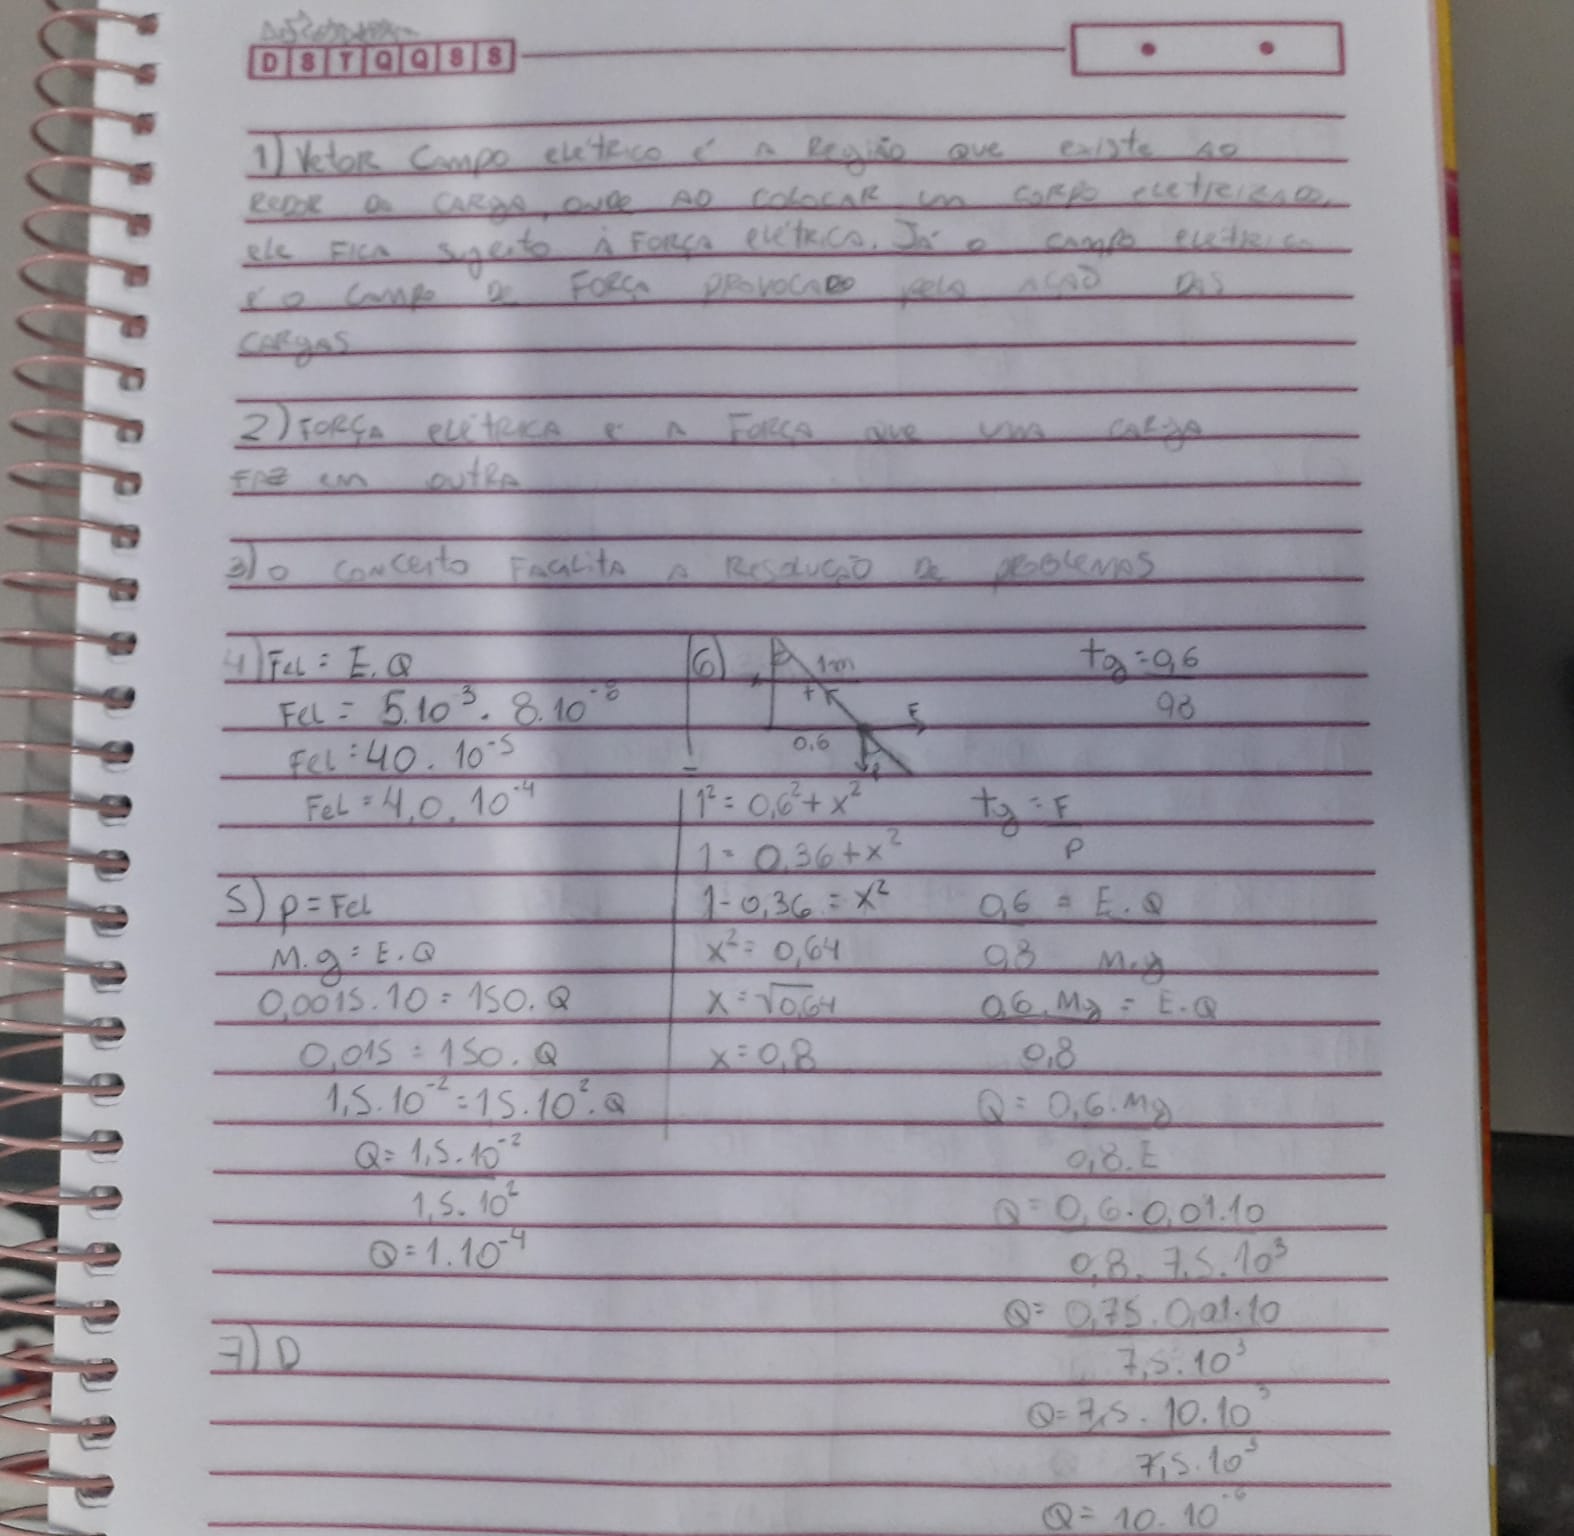 D S T Q Q S S
1) Vetor Campo elétrico é a Região que existe ao
redor da carga, onde ao colocar um corpo eletrizado,
ele fica sugeito à força elétrica. Já o campo elétrico
é o campo de força provocado pela ação das
cargas
2) Força elétrica é a força que uma carga
faz em outra
3) o conceito facilita a resolução de problemas
4) Fel = E.Q
Fel = 5.10³ . 8.10⁻⁸
Fel = 40 . 10⁻⁵
Fel = 4,0 . 10⁻⁴
5) P = Fel
M.g = E.Q
0,0015.10 = 150.Q
0,015 = 150.Q
1,5.10⁻² = 1,5.10².Q
Q = 1,5.10⁻²
1,5.10²
Q = 1.10⁻⁴
7) D
6)
1m
x
T
F
0,6
P
1² = 0,6² + x²
1 = 0,36 + x²
1 - 0,36 = x²
x² = 0,64
x = √0,64
x = 0,8
tg = 0,6
0,8
tg = F
P
0,6 = E.Q
0,8 M.g
0,6.Mg = E.Q
0,8
Q = 0,6.Mg
0,8.E
Q = 0,6.0,01.10
0,8. 7,5.10³
Q = 0,75.0,01.10
7,5.10³
Q = 7,5.10.10
7,5.10³
Q = 10.10⁻⁶